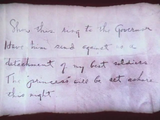 Show this ring to the Governor
Have him send against a
detachment of my best soldiers
The princess will be set ashore
this night